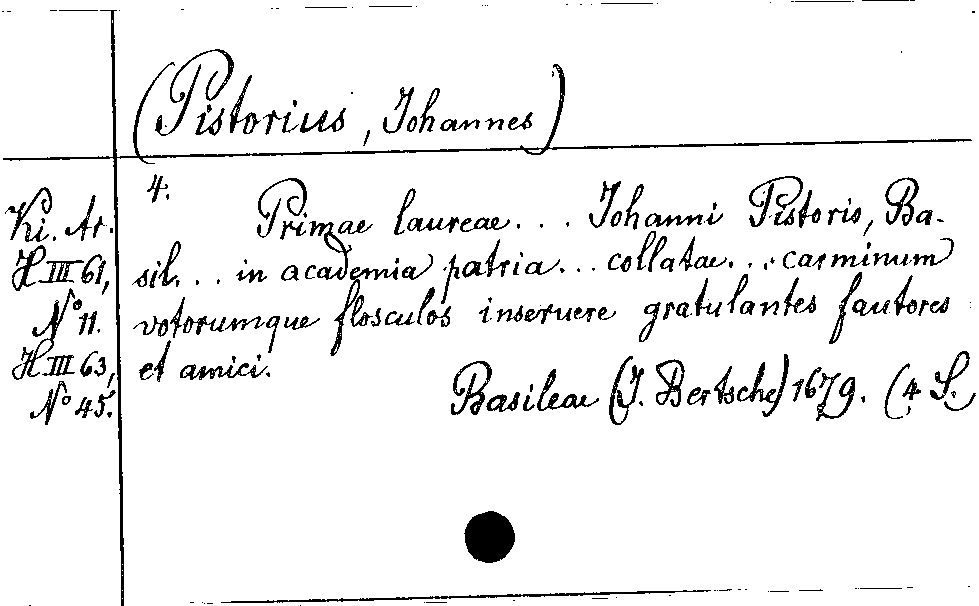 (Pistorius, Johannes)
4.
Ki. Ar.
H III 61,
No 11.
H III 63,
No 45.
Primae laureae... Johanni Pistorio, Ba-
sil... in academia patria... collatae... carminum
votorumque flosculos inseruere gratulantes fautores
et amici.
Basileae (J. Bertsche) 1679. (4 S.